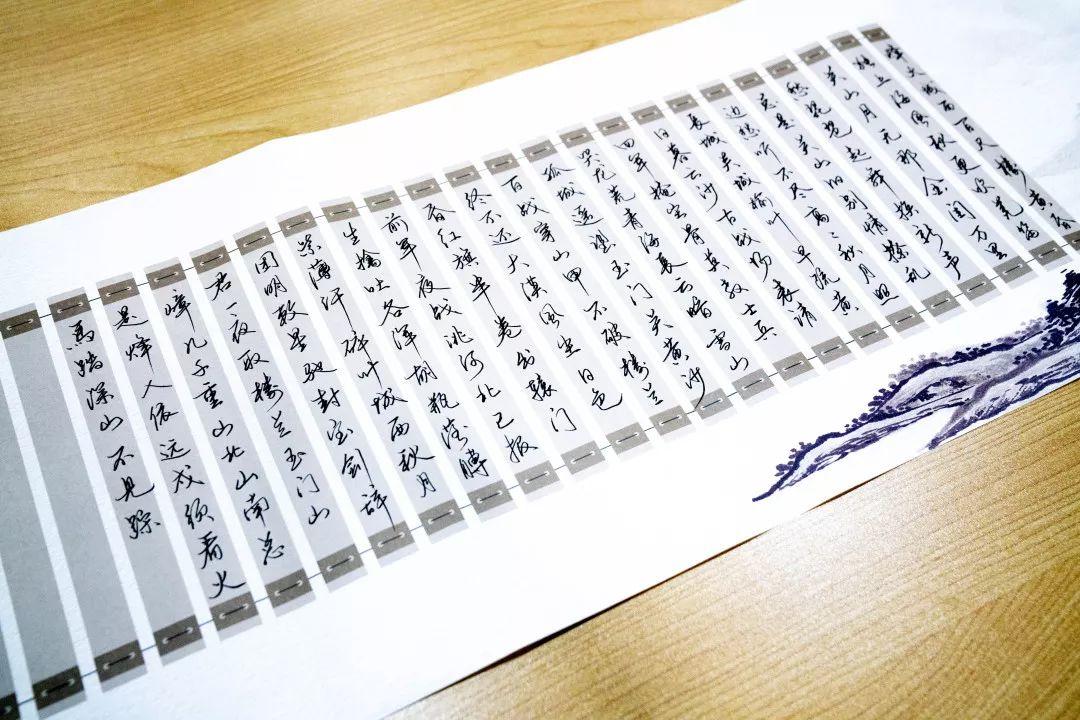 烽火城西百尺楼黄昏
独上海风秋更吹羌笛
关山月无那金闺万里
愁琵琶起舞换新声
总是关山旧别情撩乱
边愁听不尽高々秋月照
长城关城榆叶早疏黄
日暮云沙古战场表请
回军掩尘骨莫教士兵
哭龙荒青海长云暗雪山
孤城遥望玉门关黄沙
百战穿山甲不破楼兰
终不还大漠风尘日色
昏红旗半卷出辕门
前军夜战洮河北已报
生擒吐谷浑胡瓶落膊
紫薄汗碎叶城西秋月
团明敕星驰封宝剑辞
君一夜取楼兰玉门山
嶂几千重山北山南总
是烽人依远戍须看火
馬踏深山不见踪